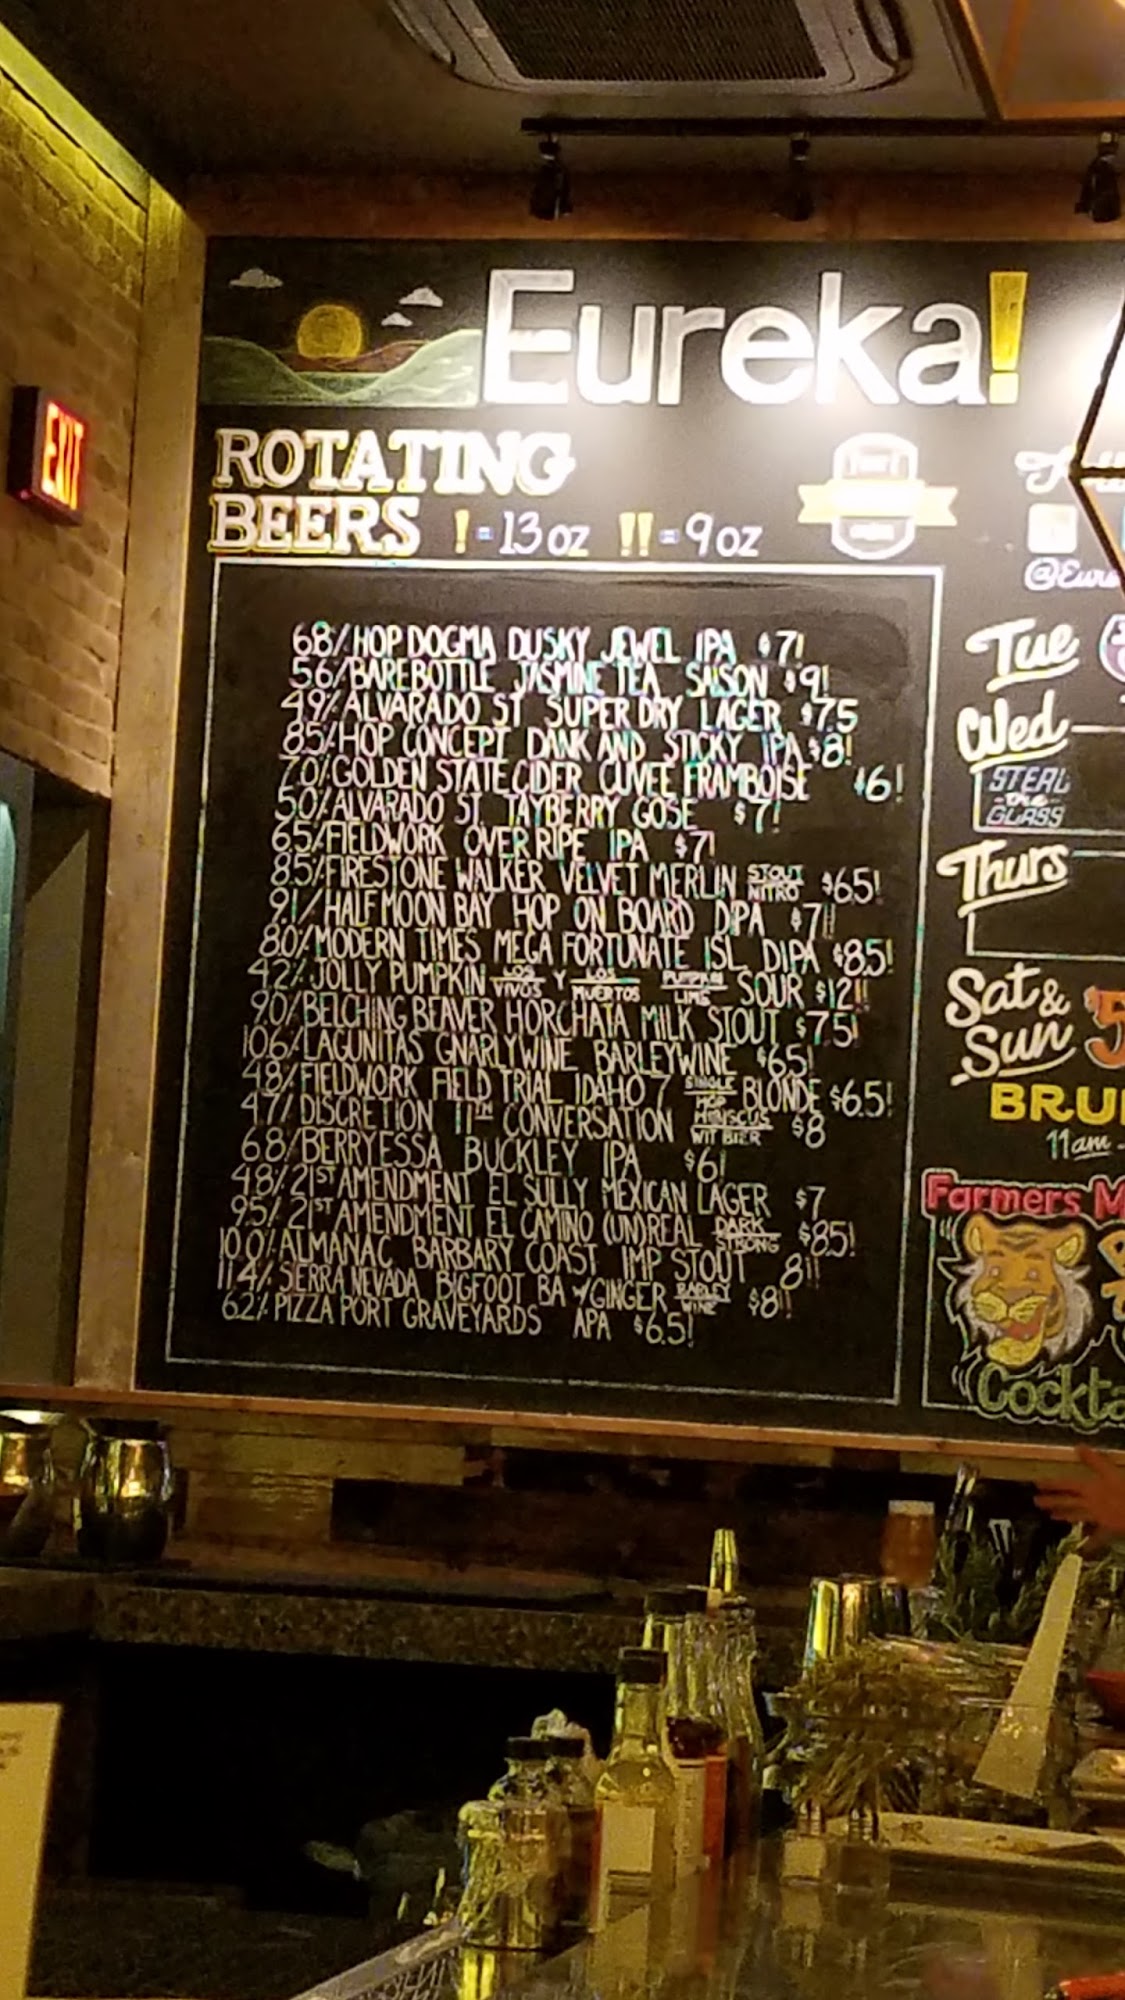 Eureka!
EXIT
ROTATING
BEERS ! = 13oz !! = 9oz
@Eure
6.8% HOP DOGMA DUSKY JEWEL IPA $7!
5.6% BAREBOTTLE JASMINE TEA SAISON $9!
4.9% ALVARADO ST SUPER DRY LAGER $7.5
8.5% HOP CONCEPT DANK AND STICKY IPA $8!
7.0% GOLDEN STATE CIDER CUVEE FRAMBOISE $6!
5.0% ALVARADO ST. TAYBERRY GOSE $7!
6.5% FIELDWORK OVER RIPE IPA $7!
8.5% FIRESTONE WALKER VELVET MERLIN STOUT NITRO $6.5!
9.1% HALF MOON BAY HOP ON BOARD DIPA $7!!
8.0% MODERN TIMES MEGA FORTUNATE ISL. DIPA $8.5!
4.2% JOLLY PUMPKIN LOS VIVOS Y LOS MUERTOS PUMPKIN LIME SOUR $12!!
9.0% BELCHING BEAVER HORCHATA MILK STOUT $7.5!
10.6% LAGUNITAS GNARLYWINE BARLEYWINE $6.5!
4.8% FIELDWORK FIELD TRIAL IDAHO 7 SINGLE HOP BLONDE $6.5!
4.7% DISCRETION 11TH CONVERSATION HIBISCUS WIT BIER $8
6.8% BERRYESSA BUCKLEY IPA $6!
4.8% 21ST AMENDMENT EL SULLY MEXICAN LAGER $7
9.5% 21ST AMENDMENT EL CAMINO (UN)REAL DARK STRONG $8.5!
10.0% ALMANAC BARBARY COAST IMP STOUT 8!!
11.4% SIERRA NEVADA BIGFOOT BA w/GINGER BARLEY WINE $8!!
6.2% PIZZA PORT GRAVEYARDS APA $6.5!
Tue
Wed
STEAL
the
GLASS
Thurs
Sat &
Sun
BRU
11am -
Farmers M
Cockta